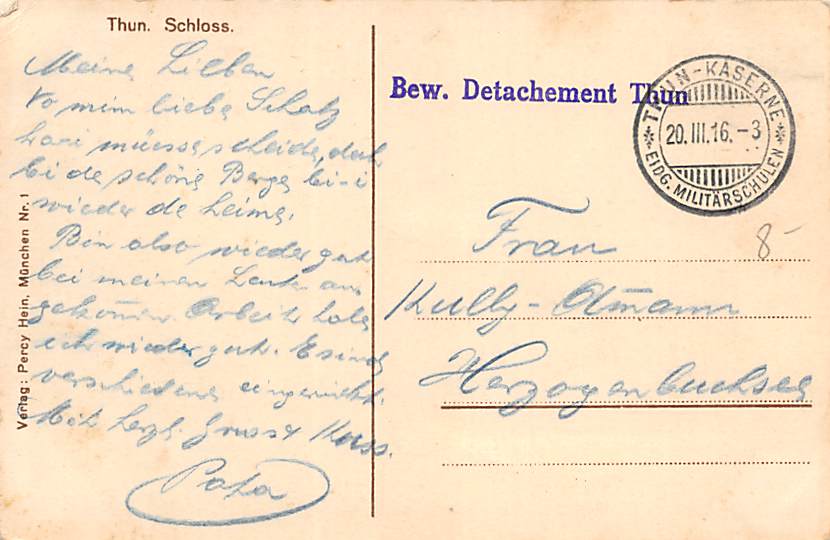 Thun. Schloss.
Meine Lieben
Vo mim liebe Schatz
hani müesse scheide, doch
bi de schöne Berge bi-i
wieder de heime.
Bin also wieder gut
bei meinen Leuten an-
gekommen. Arbeit habe
ich wieder gut. E sind
verschiedene eingerückt.
Mit herzl. Gruss & Kuss.
Papa
Verlag: Percy Hein, München Nr. 1
Bew. Detachement Thun
THUN-KASERNE
20.III.16.-3
EIDG. MILITÄRSCHULEN
8-
Frau
Kully-Otmann
Herzogenbuchsee